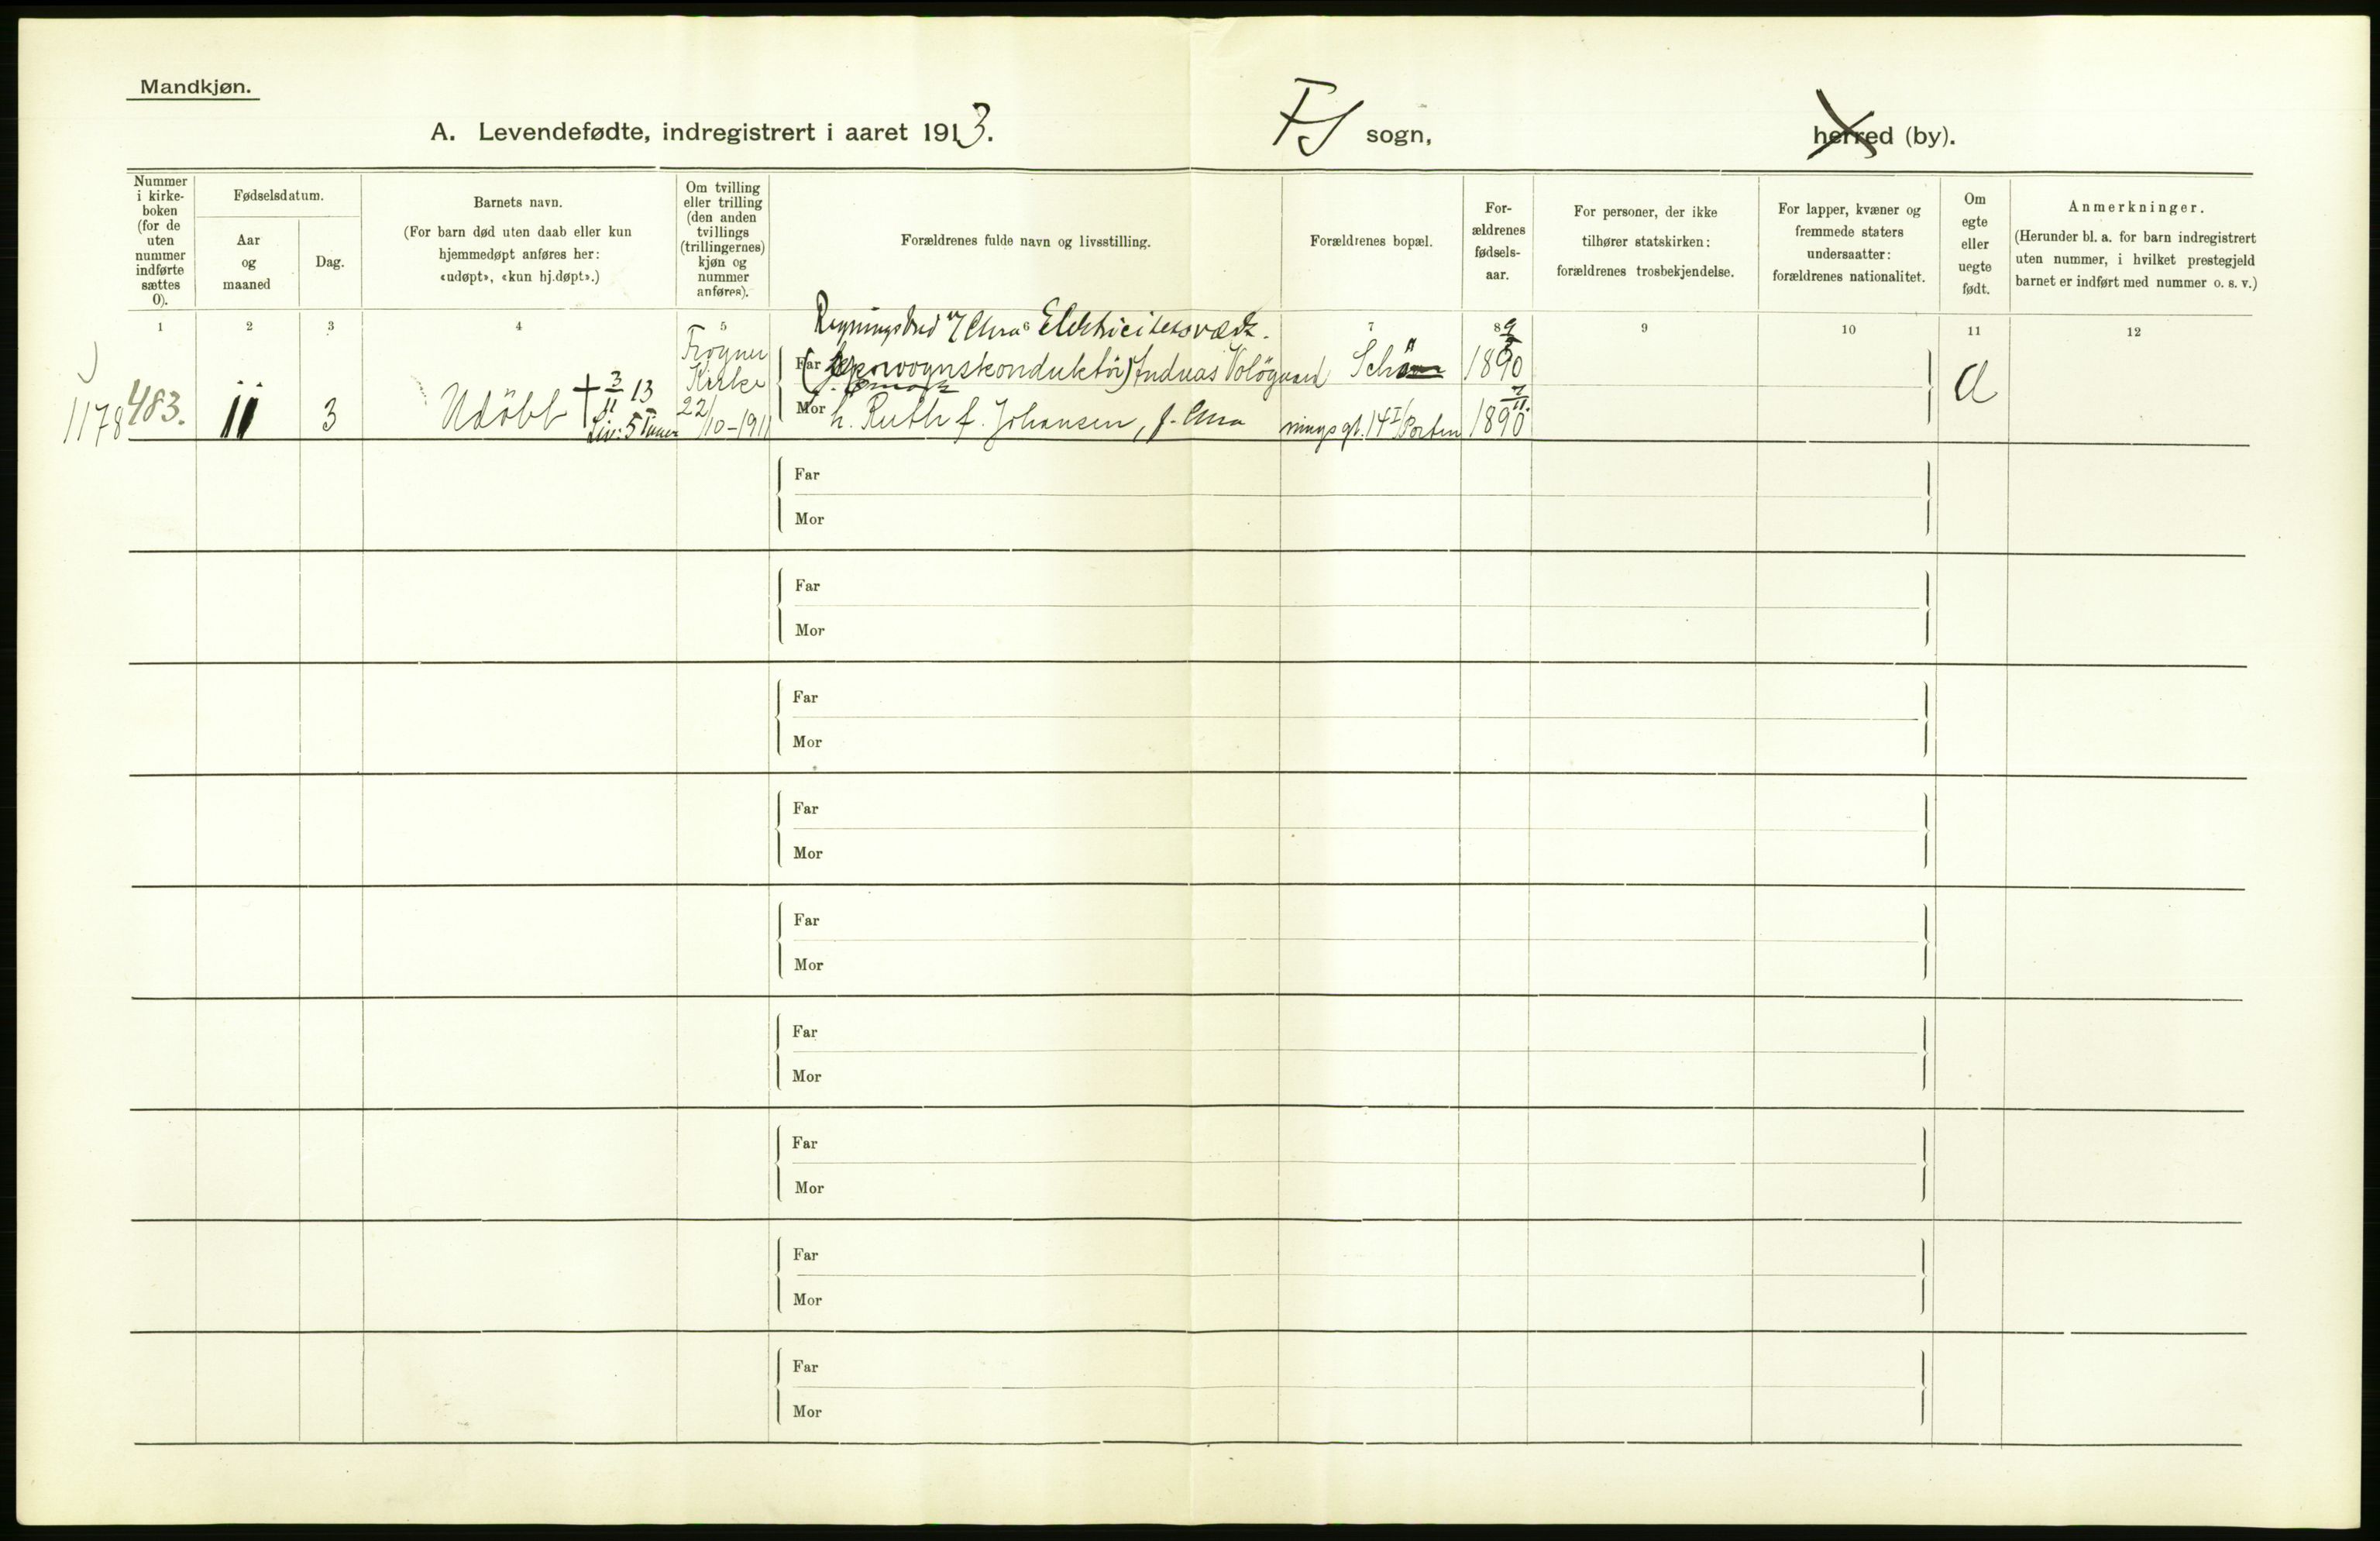 Mandkjøn.
A. Levendefødte, indregistrert i aaret 1913.
FJ sogn,
herred (by).
Nummer i kirke-boken (for de uten nummer indførte sættes 0).
Fødselsdatum.
Aar og maaned
Dag.
Barnets navn.
(For barn død uten daab eller kun hjemmedøpt anføres her: «udøpt», «kun hj.døpt».)
Om tvilling eller trilling (den anden tvillings (trillingernes) kjøn og nummer anføres).
Forældrenes fulde navn og livsstilling.
Forældrenes bopæl.
For-ældrenes fødsels-aar.
For personer, der ikke tilhører statskirken: forældrenes trosbekjendelse.
For lapper, kvæner og fremmede staters undersaatter: forældrenes nationalitet.
Om egte eller uegte født.
Anmerkninger.
(Herunder bl. a. for barn indregistrert uten nummer, i hvilket prestegjeld barnet er indført med nummer o. s. v.)
1 2 3 4 5 6 7 8 9 10 11 12
Regningsbud v/ Chra Elektricitetsværk.
1178 483. 11 3 Udöbt † 3/11 13
Liv: 5 Timer
Frogner Kirke 22/10-1911
Far (Sporvognskonduktör) Andreas Schön 9/3 1890
Mor h. Ruth f. Johansen, f. Chra ningsgt. 14 I/Porten 7/11 1890
Far
Mor
Far
Mor
Far
Mor
Far
Mor
Far
Mor
Far
Mor
Far
Mor
Far
Mor
Far
Mor